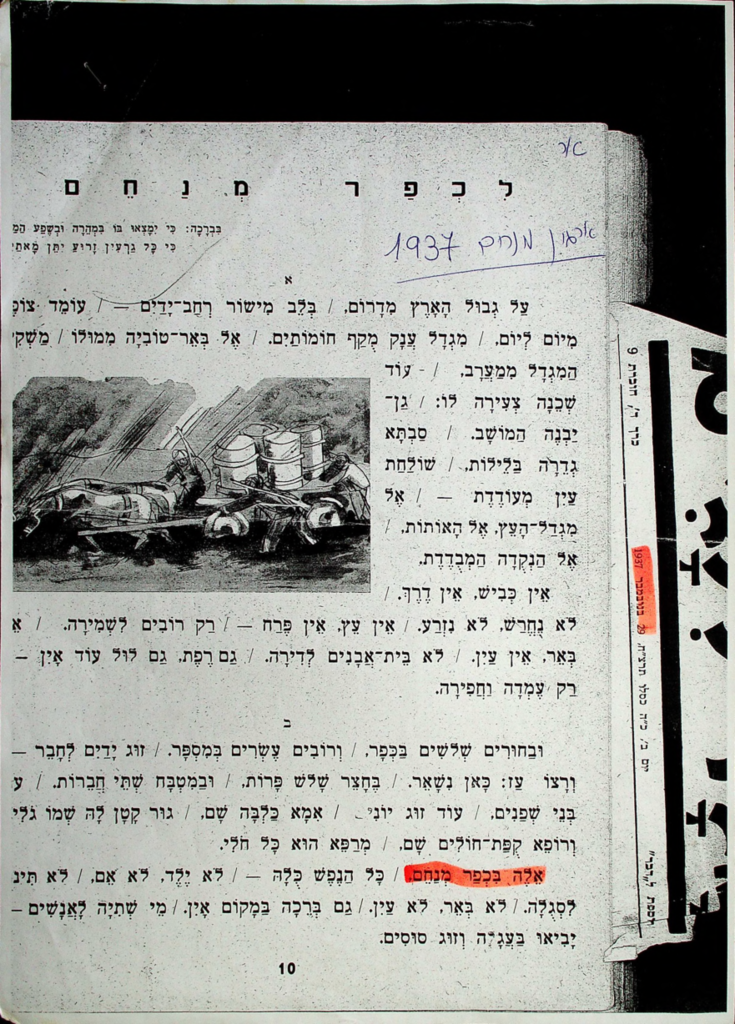 אור
לכפר מנחם
ארגון מנחם 1937
בברכה: כי ימצאו בו במהרה ובשפע המ
כי כל גרעין זרוע יתן מאתי
א
על גבול הארץ מדרום, / בלב מישור רחב־ידים — / עומד צופ
מיום ליום, / מגדל ענק מקף חומותים. / אל באר־טוביה ממולו / משקי
המגדל ממערב, / עוד
שכנה צעירה לו: / גן־
יבנה המושב. / סבתא
גדרה בלילות, / שולחת
עין מעודדת — / אל
מגדל־העץ, אל האותות, /
אל הנקודה המבודדת.
אין כביש, אין דרך. /
לא נחרש, לא נזרע. / אין עץ, אין פרח — / רק רובים לשמירה. / א
באר, אין עין. / לא בית־אבנים לדירה. / גם רפת, גם לול עוד אין —
רק עמדה וחפירה.
ב
ובחורים שלשים בכפר, / ורובים עשרים במספר. / זוג ידים לחבר —
ורצו עז: כאן נשאר. / בחצר שלש פרות, / ובמטבח שתי חברות. / ע
בני שפנים, / עוד זוג יוני / אמא כלבה שם, / גור קטן לה שמו גלי
ורופא קפת־חולים שם, / מרפא הוא כל חלי.
אלה בכפר מנחם, / כל הנפש כלה — / לא ילד, לא אם, / לא תינ
לסגלה. / לא באר, לא עין. / גם ברכה במקום אין. / מי שתיה לאנשים —
יביאו בעגלה וזוג סוסים.
10
כרך ז/ חוברת 9
יום ב/ כ״ה כסלו תרצ״ח 29 בנובמבר 1937
תוספת ל„דבר״